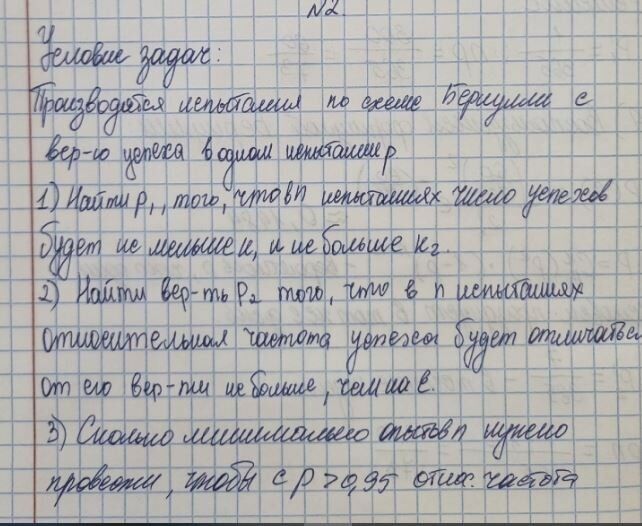 N2.
Условие задач:
Производятся испытания по схеме Бернулли с
вер-ю успеха в одном испытании p
1) Найти p₁, того, что в n испытаниях число успехов
будет не меньше k₁ и не больше k₂.
2) Найти вер-ть P₂ того, что в n испытаниях
относительная частота успеха будет отличаться
от его вер-ти не больше, чем на ε.
3) Сколько минимально опытов n нужно
провести, чтобы с p > 0,95 относ. частота